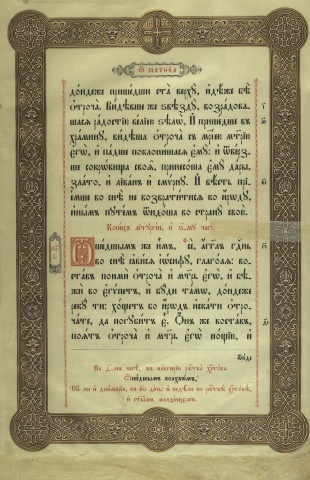 Ѿ МАТѲЕѧ
до́ндеже прише́дши ста̀ верхꙋ̀, и҆дѣ́же бѣ̀
ѻ҆троча̀. Ви́дѣвше же ѕвѣздꙋ̀, возра́дова-
шасѧ ра́достїю ве́лїею ѕѣлѡ̀. И҆ прише́дше въ
хра́минꙋ, ви́дѣша ѻ҆троча̀ съ мр҃і́ею мт҃рїю
є҆гѡ̀, и҆ па́дше поклони́шасѧ є҆мꙋ̀: и҆ ѿве́рз-
ше сокрѡ́вища своѧ҄, принесо́ша є҆мꙋ̀ да́ры,
зла́то, и҆ лїва́нъ и҆ смѵ́рнꙋ. И҆ вѣ́сть прї-
е́мше во снѣ̀ не возврати́тисѧ ко и҆́рѡдꙋ,
и҆ны́мъ пꙋте́мъ ѿидо́ша во странꙋ̀ свою̀.
Коне́цъ лїтꙋргі́и, и҆
Ѿше́дшымъ же и҆̀мъ, сѐ, а҆́гг҃лъ гд҇нь
во снѣ̀ ꙗ҆ви́сѧ і҆ѡ́сифꙋ, глаго́лѧ: во-
ста́въ поимѝ ѻ҆троча̀ и҆ мт҃рь є҆гѡ̀, и҆ бѣ-
жѝ во є҆гѵ́петъ, и҆ бꙋ́ди та́мѡ, до́ндеже
рекꙋ́ ти: хо́щетъ бо и҆́рѡдъ и҆ска́ти ѻ҆тро-
ча́те, да погꙋби́тъ є҆̀. Ѻ҆́нъ же воста́въ,
поѧ́тъ ѻ҆троча̀ и҆ мт҃рь є҆гѡ̀ но́щїю, и҆
ѿи́де
Ѿше́дшымъ волхвѡ́мъ,